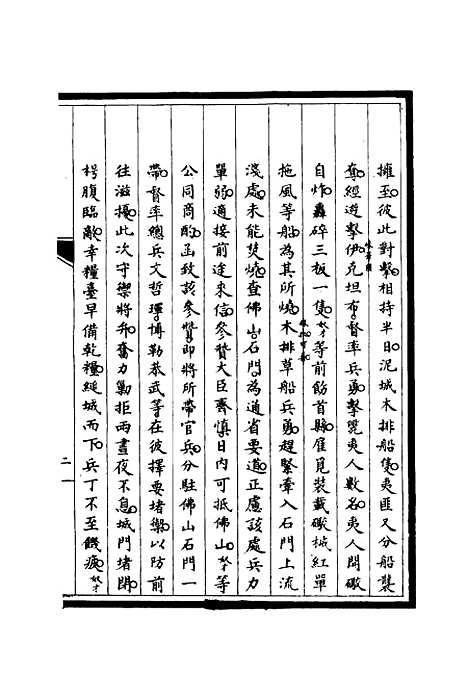 擁至彼此對擊相持半日泥城木排船隻夷匪又分船襲
奪經遊擊伊克坦布督率兵勇擊斃夷人數名夷人開礮
自炸轟碎三板一隻奴才等前飭首縣雇覓裝載礮械紅單
拖風等船為其所燒木排草船兵勇趕緊牽入石門上流
淺處未能焚燒查佛山石門為通省要道正慮該處兵力
單弱適接前途來信參贊大臣齊慎日內可抵佛山奴才等
公同商酌函致該參贊即將所帶官兵分駐佛山石門一
帶督率總兵文哲琿博勒恭武等在彼擇要堵禦以防前
往滋擾此次守禦將弁奮力剿拒兩晝夜不息城門堵閉
枵腹臨敵幸糧臺早備乾糧縋城而下兵丁不至饑疲奴才
二一